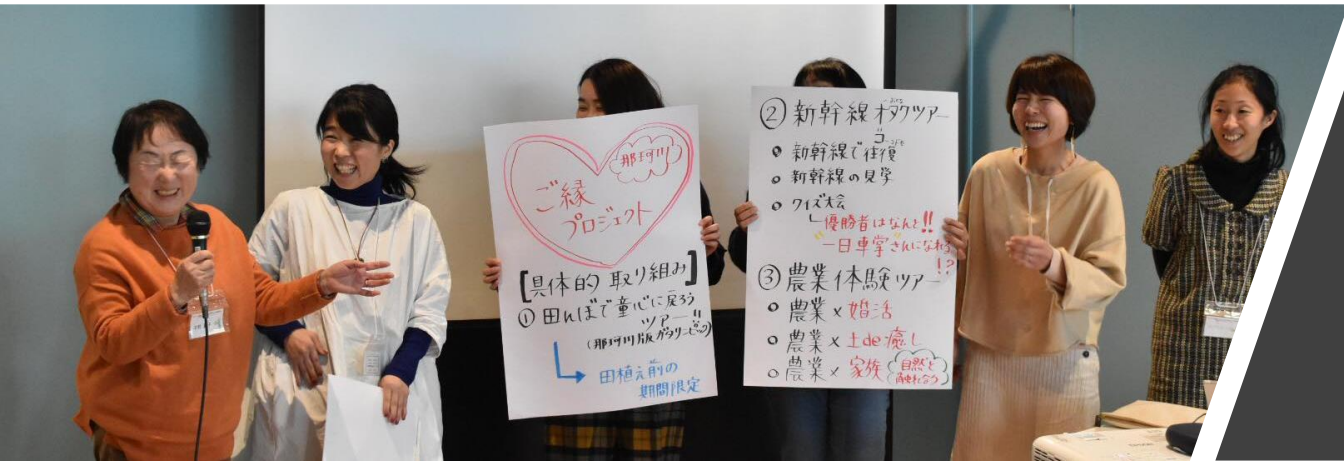 那珂川
ご縁
プロジェクト
[具体的取り組み]
① 田んぼで童心に戻ろう
ツアー!!
(那珂川版ガタリンピック)
田植え前の
期間限定
② 新幹線オタクツアー
新幹線で往復
新幹線の見学
クイズ大会
優勝者はなんと!!
"一日車掌"さんになれる
!?
③ 農業体験ツアー
農業×婚活
農業×土de癒し
農業×家族
自然と